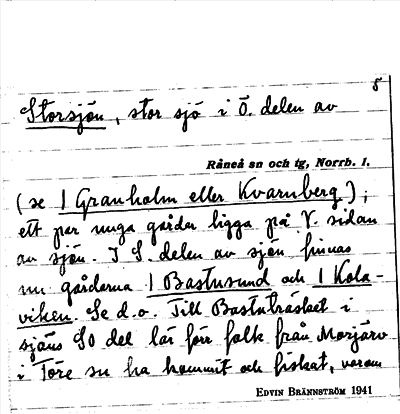 5
Storsjön, stor sjö i Ö. delen av
Råneå sn och tg, Norrb. l.
(se 1 Granholm eller Kvarnberg);
ett par unga gårdar ligga på V. sidan
av sjön. I S. delen av sjön finnas
nu gårdarna 1 Bastusund och 1 Kola-
viken. Se d.o. Till Bastuträsket i
sjöns SO del lär förr folk från Morjärv
i Töre sn ha kommit och fiskat, varom
EDVIN BRÄNNSTRÖM 1941